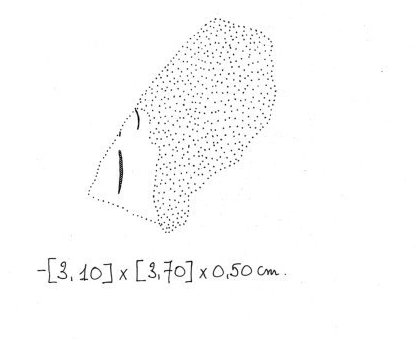 -[3,10] x [3,70] x 0,50 cm.